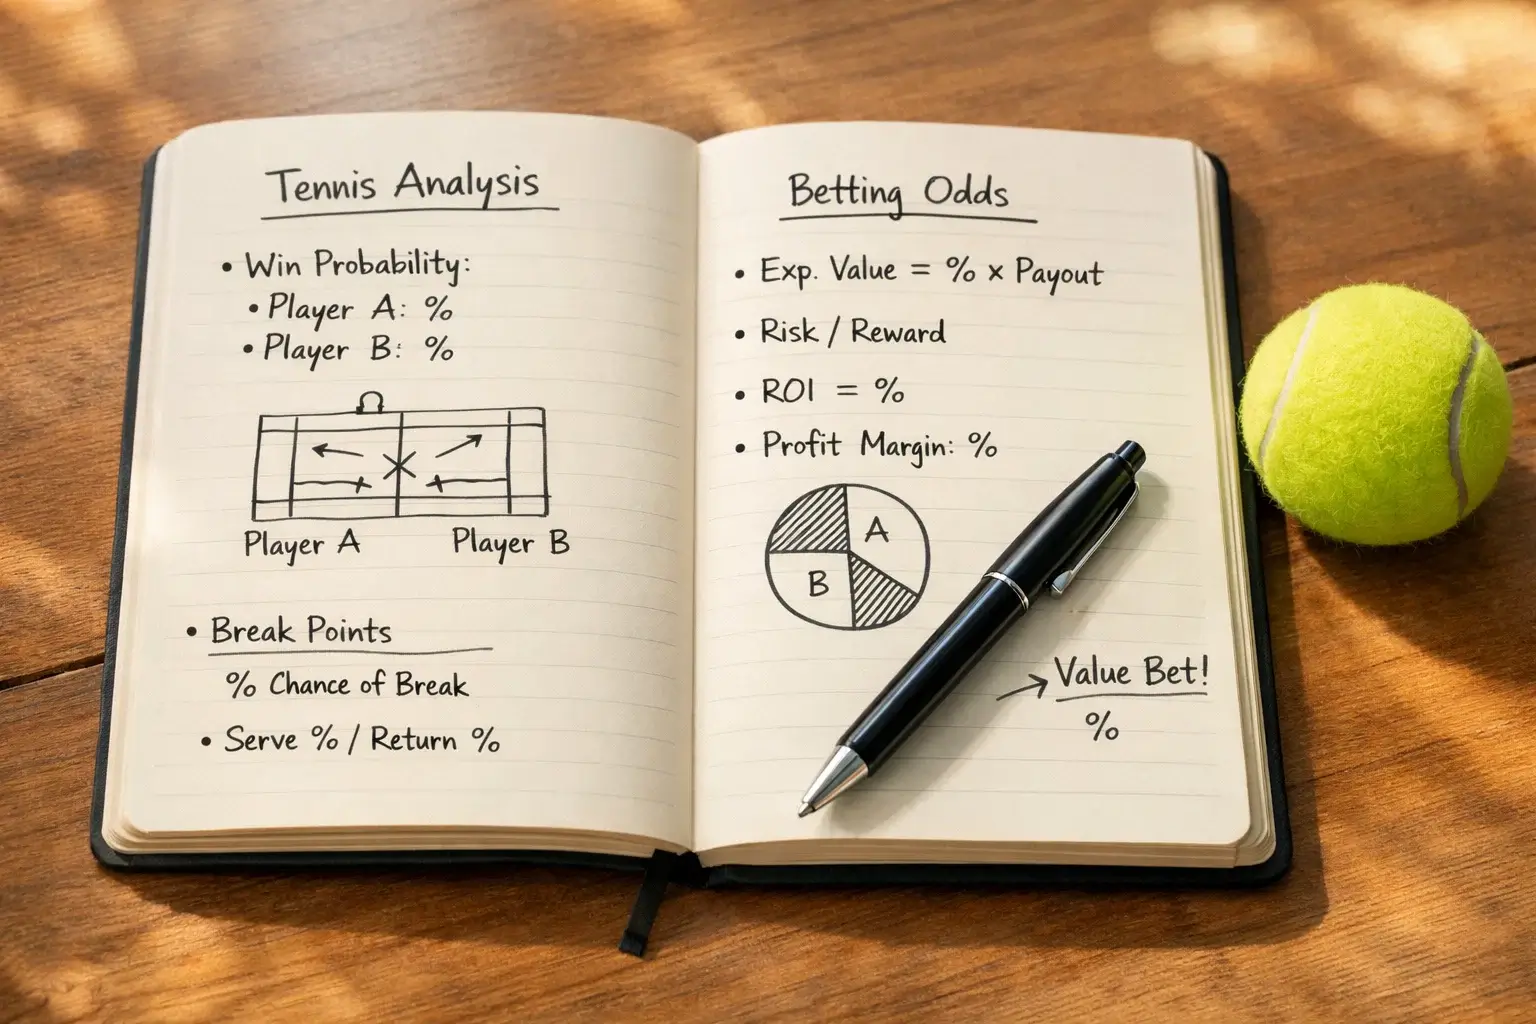 Tennis Analysis
• Win Probability:
• Player A: %
• Player B: %
Player A
Player B
• Break Points
% Chance of Break
• Serve % / Return %
Betting Odds
• Exp. Value = % × Payout
• Risk / Reward
• ROI = %
• Profit Margin: %
A
B
→ Value Bet!
%